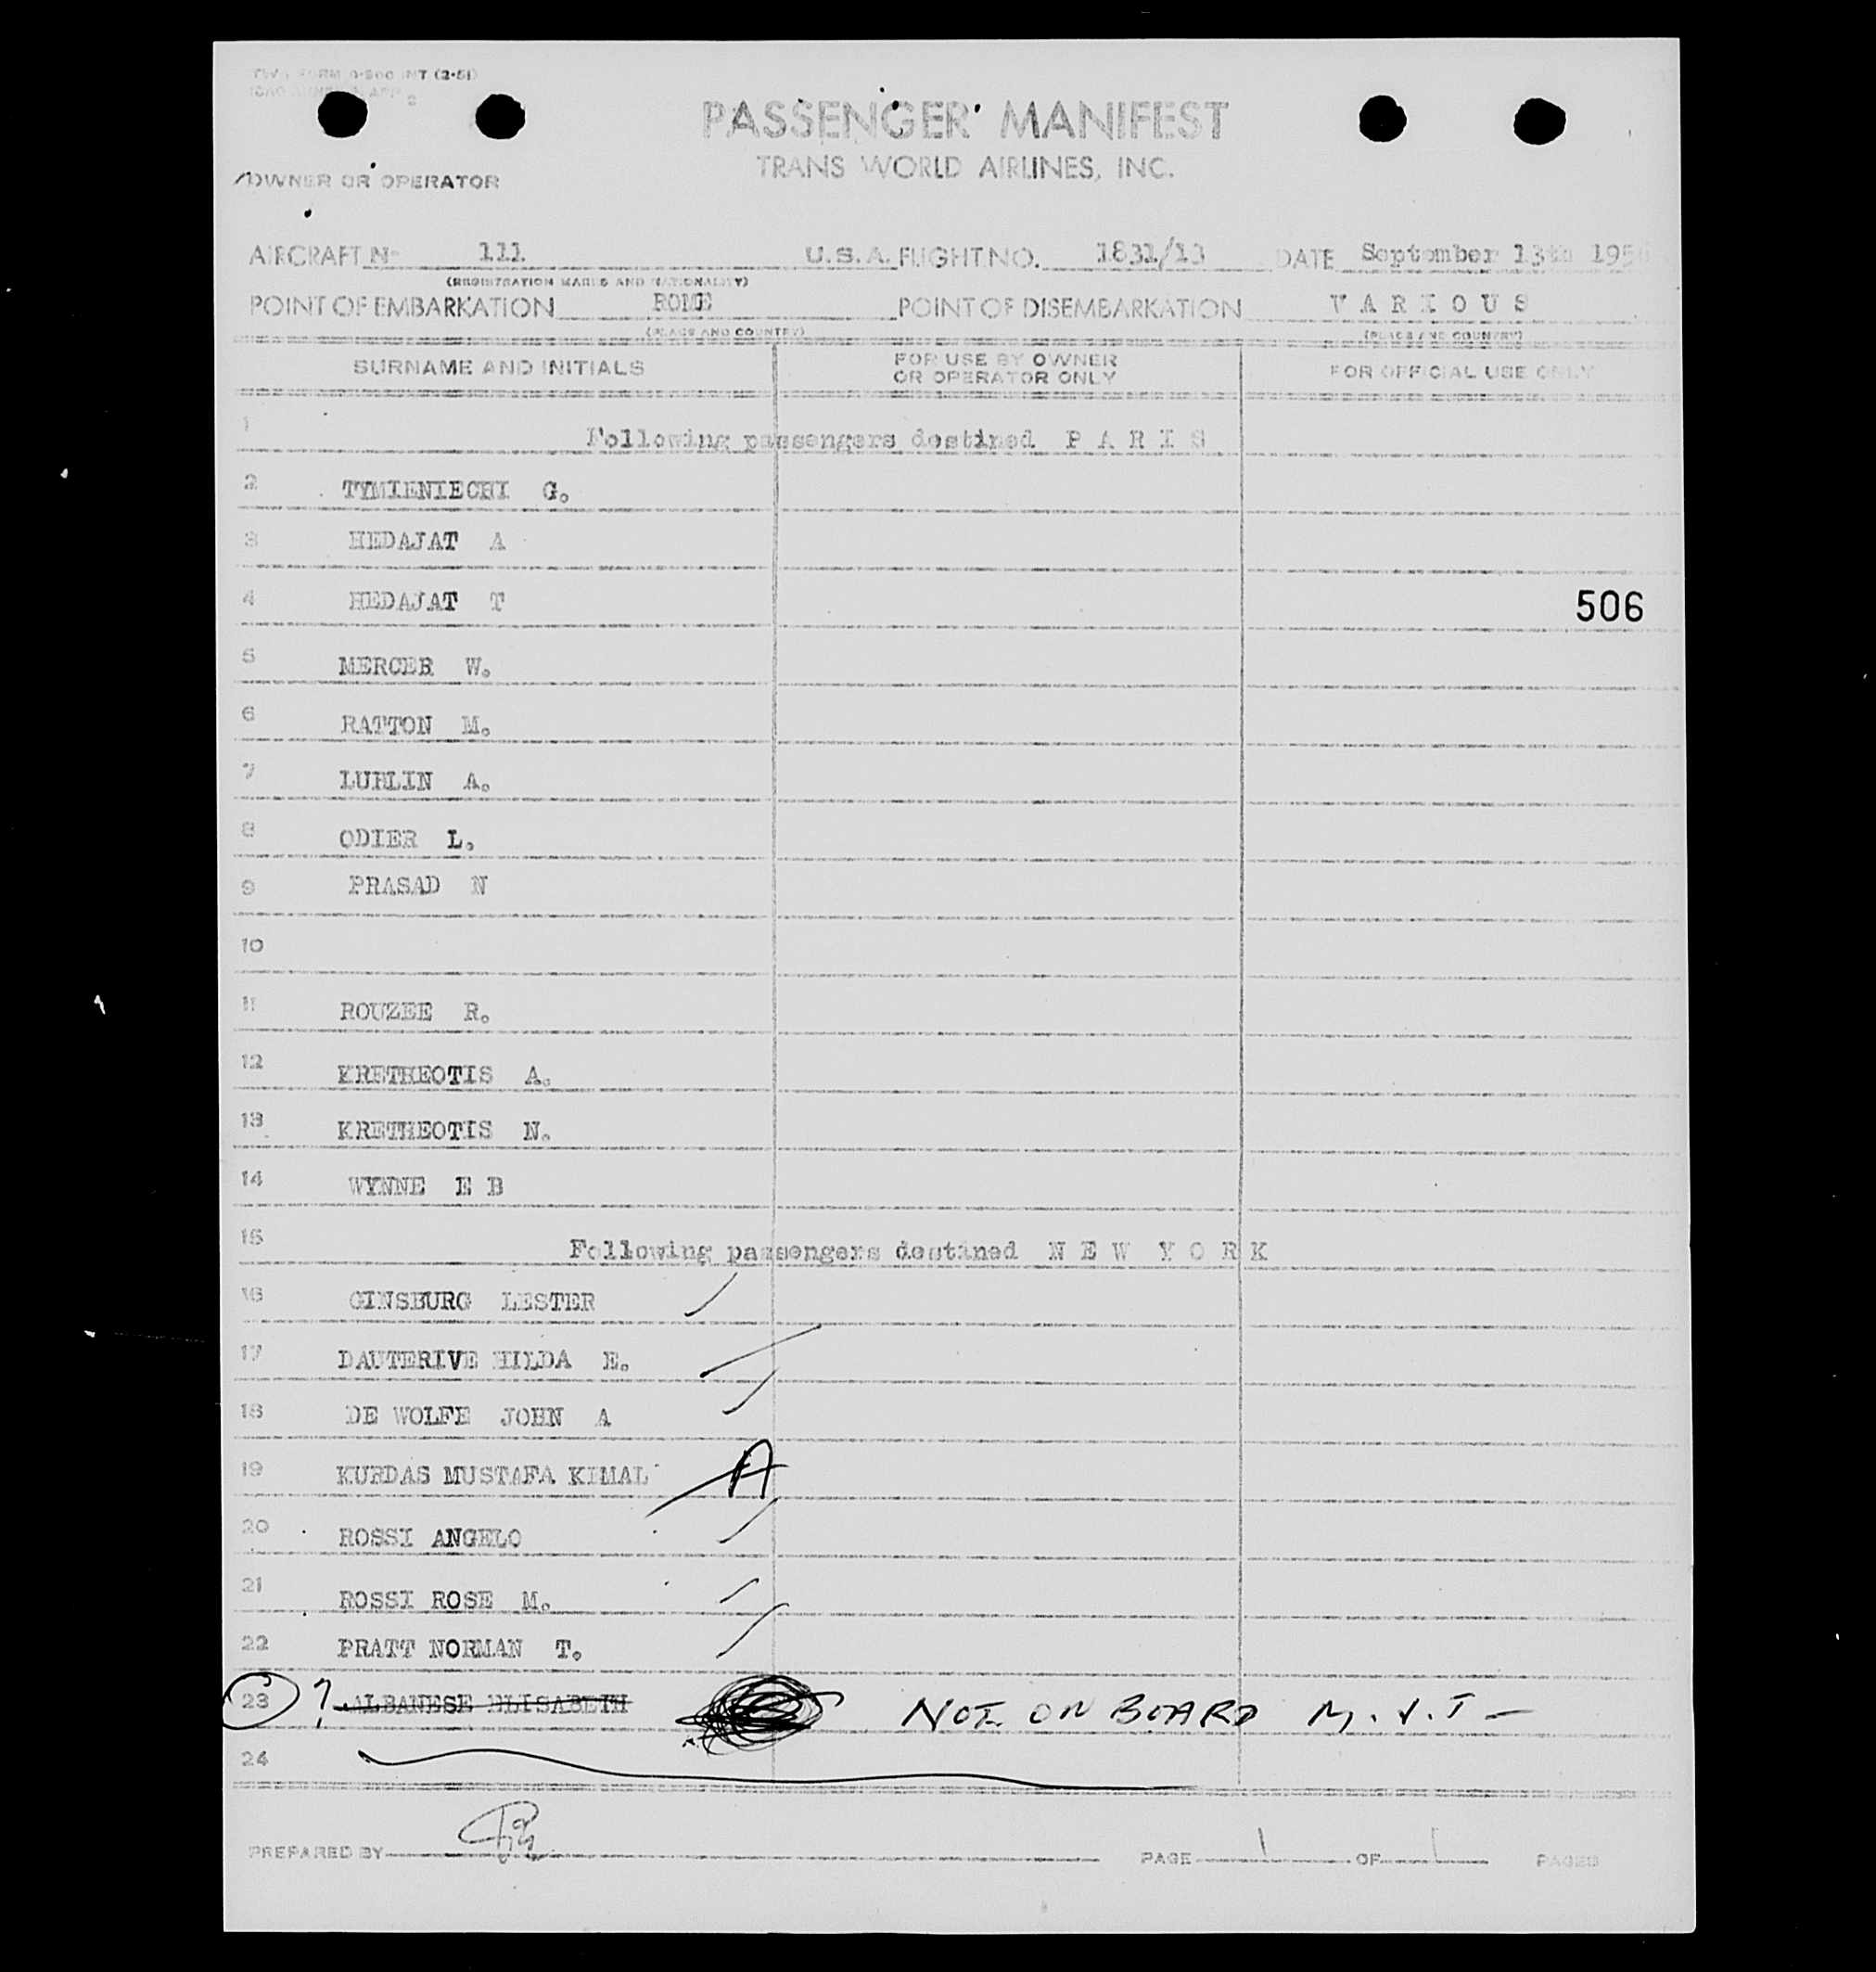 FORM INT (2-51)
PASSENGER MANIFEST
TRANS WORLD AIRLINES, INC.
OWNER OR OPERATOR
AIRCRAFT No 111 U.S.A. FLIGHT NO. 1831/13 DATE September 13th 195
(REGISTRATION MARKS AND NATIONALITY)
POINT OF EMBARKATION ROME POINT OF DISEMBARKATION V A R I O U S
(PLACE AND COUNTRY) (PLACE AND COUNTRY)
SURNAME AND INITIALS FOR USE BY OWNER OR OPERATOR ONLY FOR OFFICIAL USE ONLY
1 Following passengers destined P A R I S
2 TYMIENIECHI G.
3 HEDAJAT A
4 HEDAJAT T 506
5 MERCER W.
6 RATTON M.
7 LUBLIN A.
8 ODIER L.
9 PRASAD N
10
11 ROUZEE R.
12 KRETHEOTIS A.
13 KRETHEOTIS N.
14 WYNNE E B
15 Following passengers destined N E W Y O R K
16 GINSBURG LESTER
17 DAUTERIVE HILDA E.
18 DE WOLFE JOHN A
19 KURDAS MUSTAFA KIMAL A
20 ROSSI ANGELO
21 ROSSI ROSE M.
22 PRATT NORMAN T.
23 ? ALBANESE ELISABETH NOT ON BOARD
24
PREPARED BY PAGE 1 OF 1 PAGES